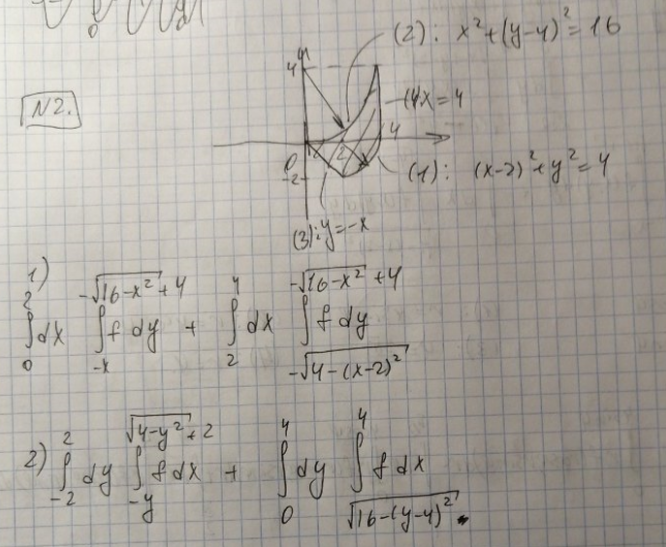 (2): x² + (y-4)² = 16
N2.
4
(4) x = 4
4
0
2
-2
(1): (x-2)² + y² = 4
(3): y = -x
1) ∫₀² dx ∫₋ₓ^(-√(16-x²)+4) f dy + ∫₂⁴ dx ∫_(-√(4-(x-2)²))^(-√(16-x²)+4) f dy
2) ∫₋₂² dy ∫_(-y)^(√(4-y²)+2) f dx + ∫₀⁴ dy ∫_(√(16-(y-4)²))^4 f dx